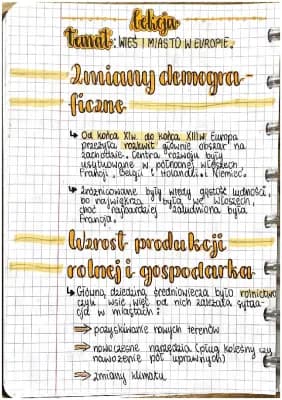 Lekcja
Temat: WIEŚ I MIASTO W EUROPIE.
Zmiany demogra-
ficzne
↳ Od końca XIw. do końca XIIIw. Europa
przeżyła rozkwit głównie obszar na
zachodzie. Centra rozwoju były
usytuowane w północnej Włoszech,
Francji, Belgii i Holandii i Niemiec.
↳ Zróżnicowane były wtedy gęstość ludności,
bo największa była we Włoszech,
choć najbardziej zaludniona była
Francja.
Wzrost produkcji
rolnej i gospodarka
↳ Główną dziedziną średniowiecza było rolnictwo
czyli wsie, więc od nich zależała sytua-
cja w miastach:
⇒ pozyskiwanie nowych terenów
⇒ nowoczesne narzędzia (pług koleśny czy
nawożenie pól uprawnych)
⇒ zmiany klimatu